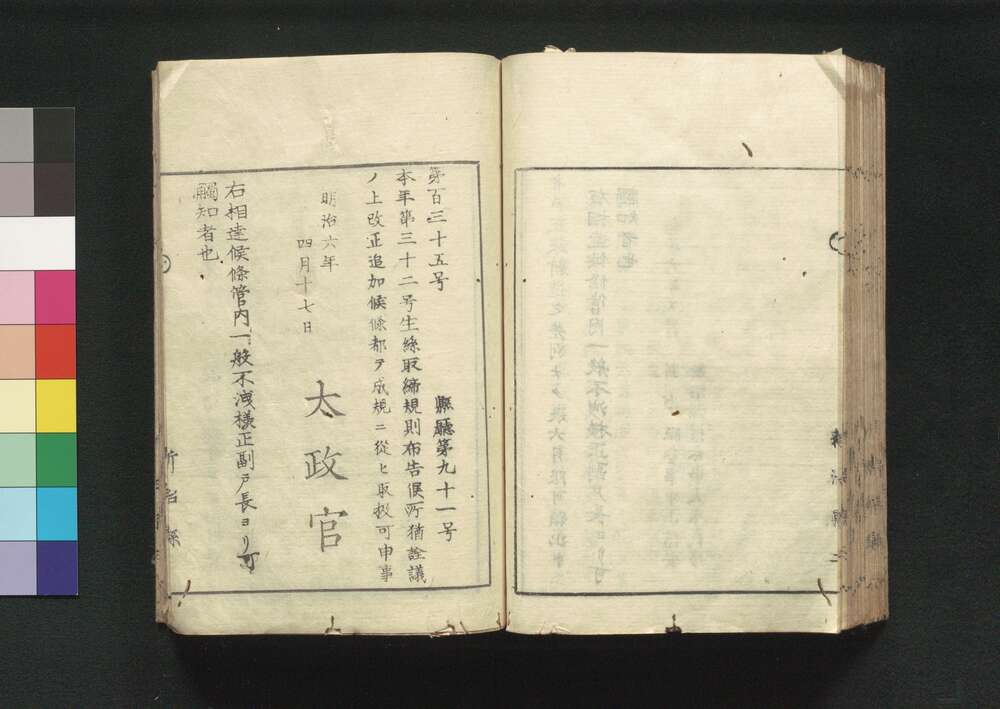 第百三十五号
縣廳第九十一号
本年第三十二号生絲取締規則布告候所猶詮議
ノ上改正追加候條都テ成規ニ從ヒ取扱可申事
明治六年
四月十七日
太政官
右相達候條管内一般不洩様正副戸長ヨリ可
觸知者也